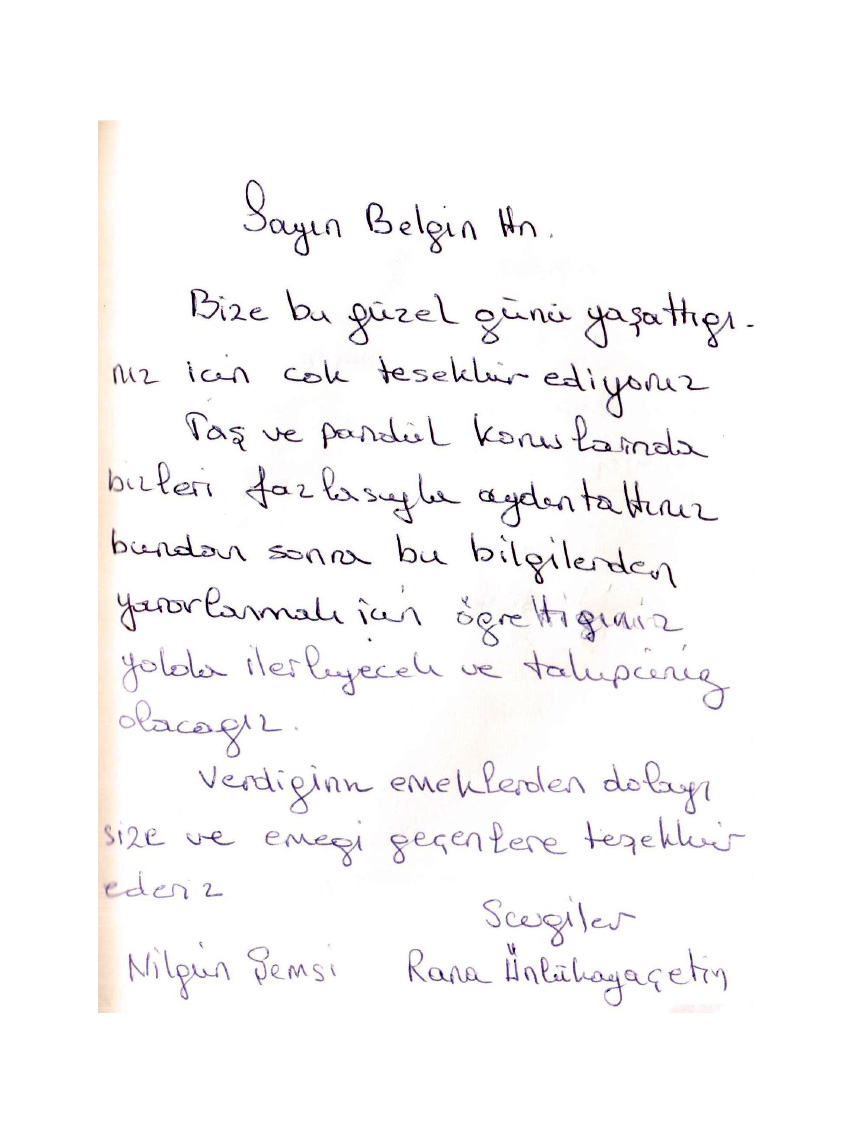 Sayın Belgin Hn.
Bize bu güzel günü yaşattığı-
nız icin cok tesekkür ediyoruz
Taş ve pandül konularında
bizleri fazlasıyla aydınlattınız
bundan sonra bu bilgilerden
yararlanmak için öğrettiğiniz
yolda ilerleyecek ve takipçiniz
olacagız.
Verdiginiz emeklerden dolayı
size ve emegi geçenlere teşekkür
ederiz
Sevgiler
Nilgün Şemsi Rana Ünlükayaçetin